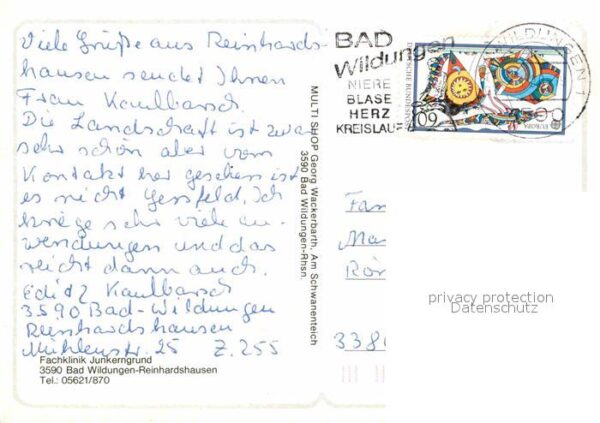 Viele Grüße aus Reinhards-
hausen sendet Ihnen
Frau Kaulbarsch.
Die Landschaft ist zwar
sehr schön aber vom
Kontakt her gesehen ist
es nicht Ich
kriege sehr viele An-
wendungen und das
reicht dann auch.
Edith Kaulbarsch
3590 Bad-Wildungen
Reinhardshausen
Mühlenstr. 25 Z. 255
Fachklinik Junkerngrund
3590 Bad Wildungen-Reinhardshausen
Tel.: 05621/870
MULTI SHOP Georg Wackerbarth, Am Schwanenteich
3590 Bad Wildungen-Rhsn.
BAD
Wildungen
NIERE
BLASE
HERZ
KREISLAUF
WILDUNGEN 1
3590
DEUTSCHE BUNDESPOST
60
EUROPA
Fam
Ma
Rön
338
privacy protection
Datenschutz